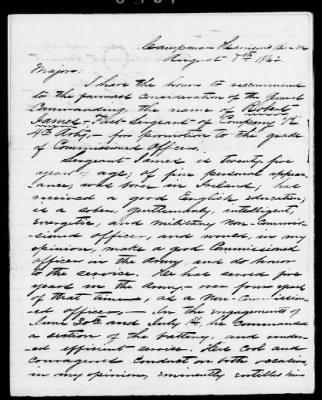 Camp near Harrison's Landing
August 8th 1862.
Major:
I have the honor to recommend
to the favorable consideration of the General
Commanding, the name of Robert
James — First Sergeant of Company
4th Arty, — for promotion to the grade
of Commissioned Officer.
Sergeant James is twenty five
years of age; of fine personal appear-
ance; was born in Ireland; has
received a good English education;
is a sober, gentlemanly, intelligent,
energetic, and military Non-Commis-
sioned officer, and would, in my
opinion, make a good Commissioned
officer in the Army, and do honor
to the service. He has served five
years in the Army — over four years
of that time, as a Non-Commission-
ed officer. — In the engagements of
June 30th and July 1st, he Commanded
a section of the battery, and render-
ed efficient service. His cool and
courageous conduct on both occasions,
in my opinion, eminently entitles him